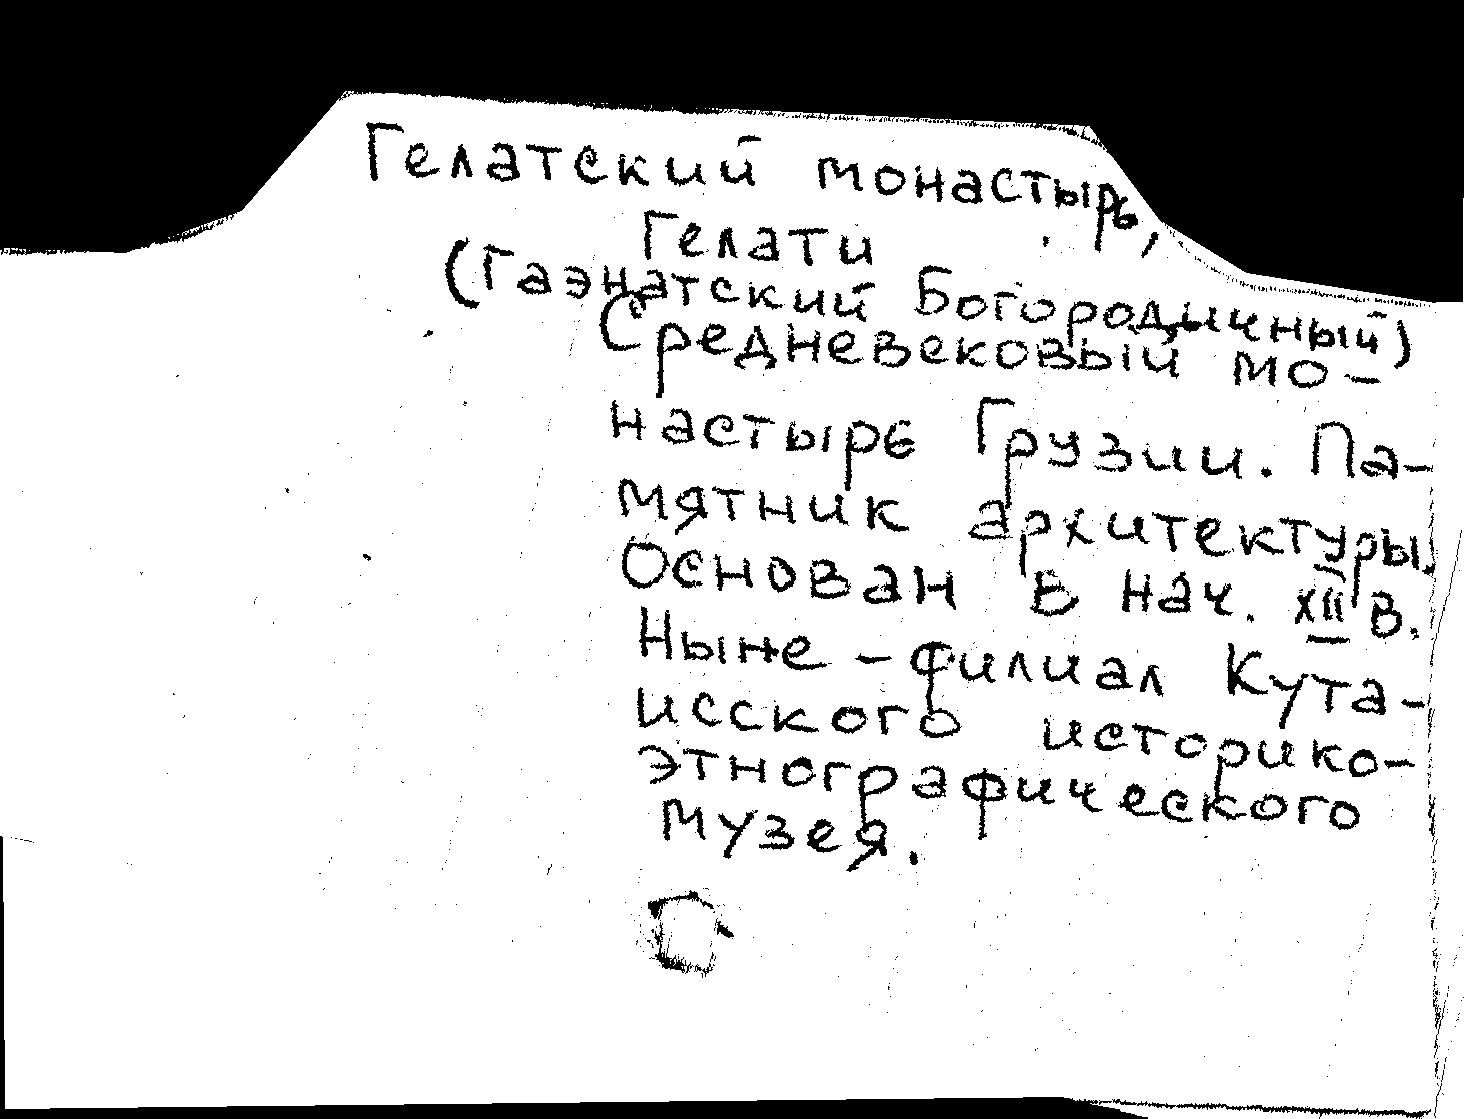 Гелатский монастырь,
Гелати
(Гаэнатский Богородичный)
Средневековый мо-
настырь Грузии. Па-
мятник архитектуры.
Основан в нач. XII в.
Ныне - филиал Кута-
исского историко-
этнографического
музея.